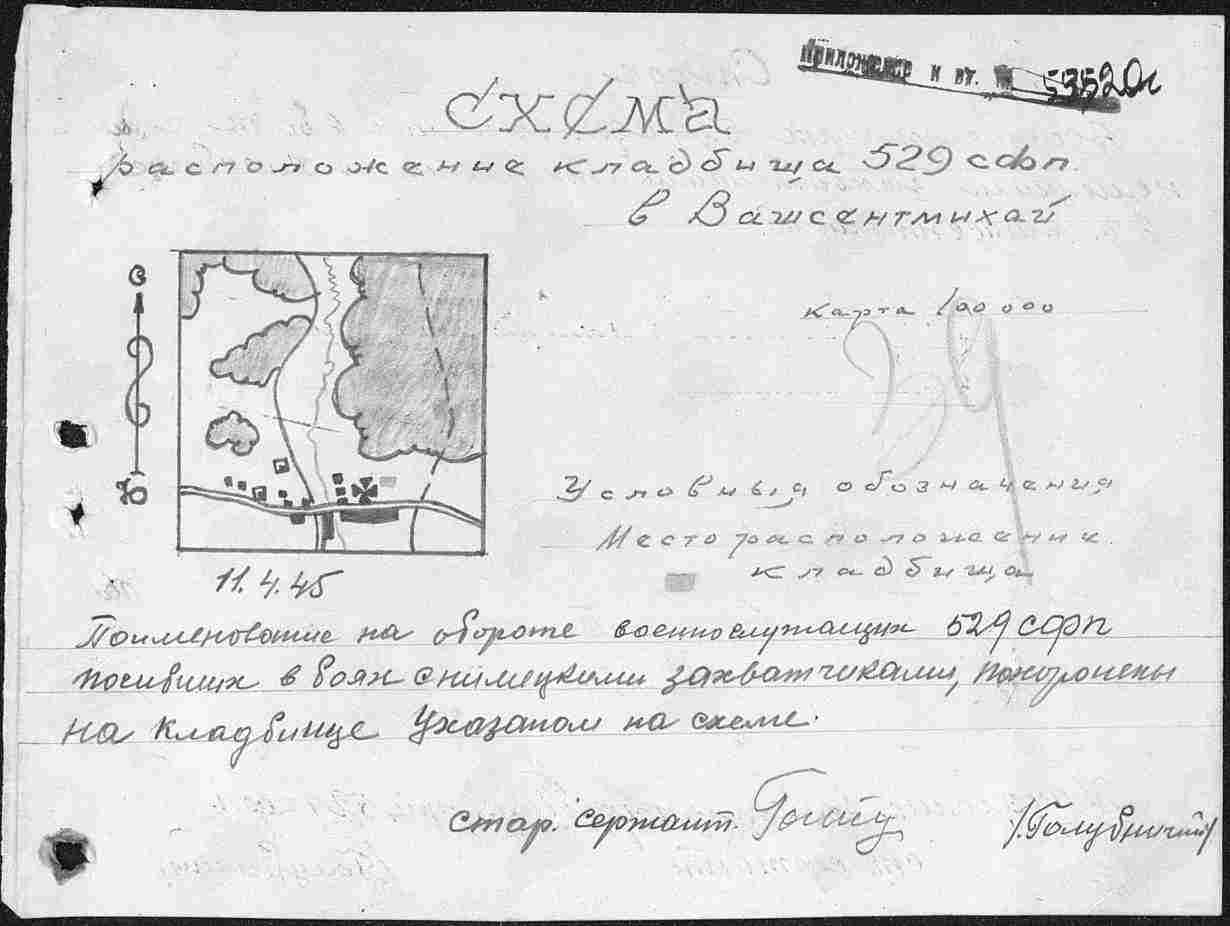 Приложение к вх. 53520с
Схема
расположение кладбища 529 сфп
в Вашсентмихай
карта 100 000
с
Ю
Условныя обозначения
Место расположение
кладбища
11.4.45
Поименование на обороте военнослужащих 529 сфп
погибших в боях с нимецкими захватчиками, похоронены
на кладбище указаном на схеме.
стар. сержант.
/Голубничий/